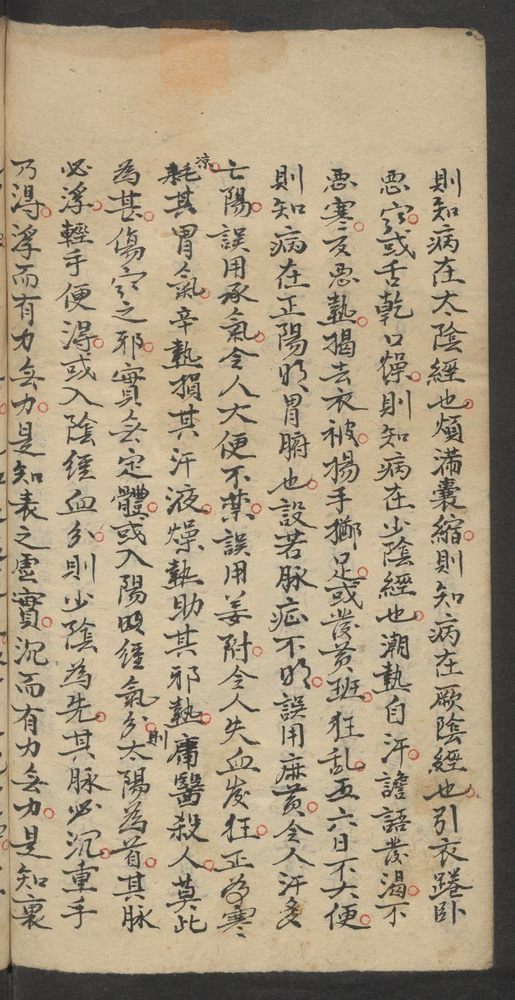 則知病在太陰經也煩滿囊縮則知病在厥陰經也引衣踡卧
惡寒或舌乾口燥則知病在少陰經也潮熱自汗譫語發渴不
惡寒反惡熱揭去衣被揚手擲足或發黃班狂亂五六日不大便
則知病在正陽明胃腑也設若脉症不明誤用麻黃令人汗多
亡陽誤用承氣令人大便不禁誤用姜附令人失血發狂正為寒
涼耗其胃氣辛熱損其汗液燥熱助其邪熱庸醫殺人莫此
為甚傷寒之邪實無定體或入陽明經氣分則太陽為首其脉
必浮輕手便得或入陰經血分則少陰為先其脉必沉重手
乃得浮而有力無力是知表之虛實沉而有力無力是知裏